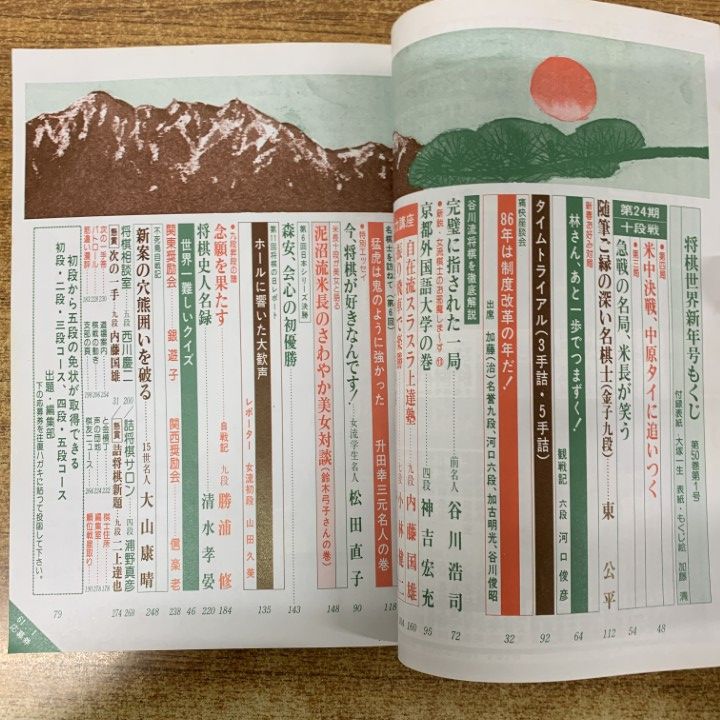 将棋世界新年号もくじ
第50巻第1号
付録表紙 大塚一生 表紙・もくじ絵 加藤 満
第24期
十段戦
●第四局
米中決戦、中原タイに追いつく
48
●第三局
急戦の名局、米長が笑う
54
随筆ご縁の深い名棋士(金子九段)
東 公平
112
新春お好み対局
林さん、あと一歩でつまずく!
観戦記 六段 河口俊彦
64
タイムトライアル(3手詰・5手詰)
92
痛快座談会
86年は制度改革の年だ!
出席 加藤(治)名誉九段、河口六段、加古明光、谷川俊昭
32
谷川流将棋を徹底解説
完璧に指された一局
前名人 谷川浩司
72
●新説・女流棋士のお邪魔しまーす⑪
京都外国語大学の巻
四段 神吉宏充
96
講座
自在流スラスラ上達塾
九段 内藤国雄
160
名棋士を訪ねて(第6回)
猛虎は鬼のように強かった
升田幸三元名人の巻
118
●特別エッセイ
今、将棋が好きなんです!
女流学生名人 松田直子
90
米長十段が美女と語る
泥沼流米長のさわやか美女対談(鈴木弓子さんの巻)
148
第6回日本シリーズ決勝
森安、会心の初優勝
143
第11回将棋の日レポート
ホールに響いた大歓声
レポーター 女流初段 山田久美
135
●九段昇段の譜
念願を果たす
自戦記 九段 勝浦 修
184
将棋史人名録
清水孝晏
220
世界一難しいクイズ
46
関東奨励会 銀遊子
関西奨励会 信楽老
238
不死鳥自戦記
新案の穴熊囲いを破る
15世名人 大山康晴
248
将棋相談室
四段 西川慶二
200
詰将棋サロン
四段 浦野真彦
268
懸賞
次の一手
九段 内藤国雄
31
懸賞
詰将棋新題
九段 二上達也
274
次の一手帯
パトロール
筋違い漫評
道場案内
棋戦の動き
支部の頁
と金横丁
声の団地
棋友ニュース
棋士住所
編集室
順位戦星取り
初段から五段の免状が取得できる
初段・二段・三段コース、四段・五段コース
出題・編集部
下の応募券を往復ハガキに貼って投函して下さい。
79
61・1
応募券